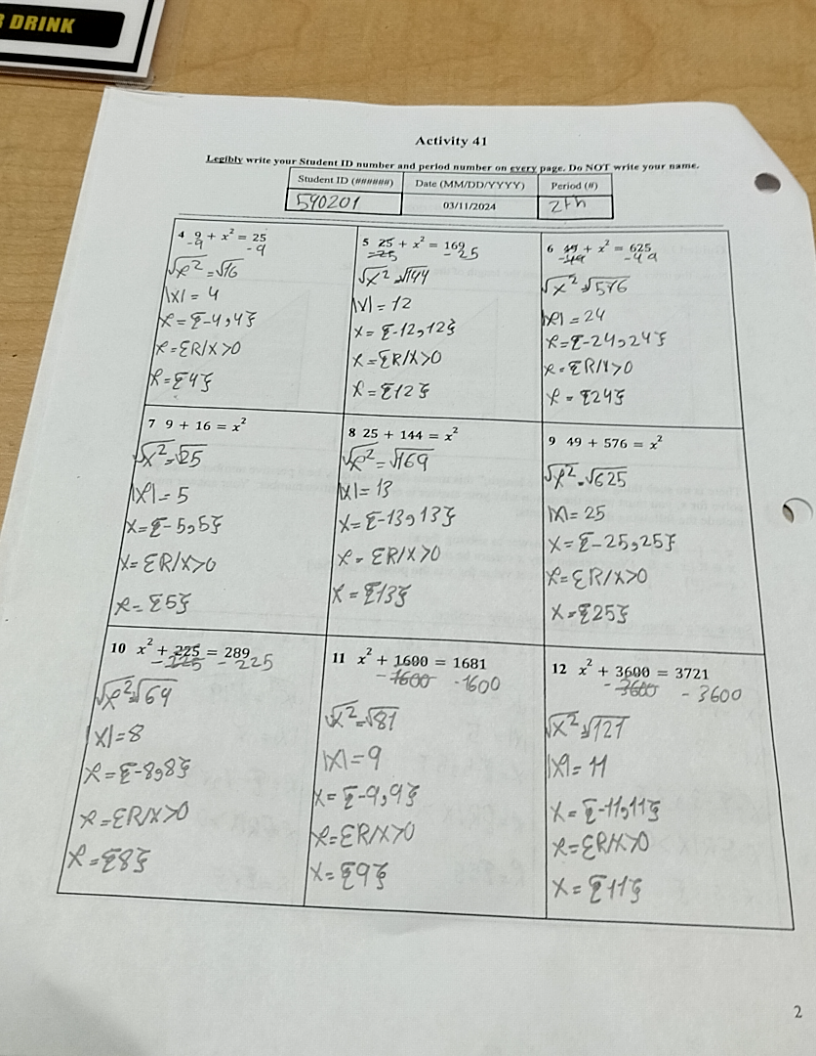 R DRINK
Activity 41
Legibly write your Student ID number and period number on every page. Do NOT write your name.
Student ID (######) Date (MM/DD/YYYY) Period (#)
590201 03/11/2024 2th
4 9 + x² = 25
-9 -9
√x² = √16
|x| = 4
x = {-4,4}
x = {R/x>0
x = {4}
5 25 + x² = 169
-25 -25
√x² = √144
|x| = 12
x = {-12,12}
x = {R/x>0
x = {12}
6 49 + x² = 625
-49 -49
√x² = √576
|x| = 24
x = {-24,24}
x = {R/x>0
x = {24}
7 9 + 16 = x²
√x² = √25
|x| = 5
x = {-5,5}
x = {R/x>0
x = {5}
8 25 + 144 = x²
√x² = √169
|x| = 13
x = {-13,13}
x = {R/x>0
x = {13}
9 49 + 576 = x²
√x² = √625
|x| = 25
x = {-25,25}
x = {R/x>0
x = {25}
10 x² + 225 = 289
-225 -225
√x² = √64
|x| = 8
x = {-8,8}
x = {R/x>0
x = {8}
11 x² + 1600 = 1681
-1600 -1600
√x² = √81
|x| = 9
x = {-9,9}
x = {R/x>0
x = {9}
12 x² + 3600 = 3721
-3600 -3600
√x² = √121
|x| = 11
x = {-11,11}
x = {R/x>0
x = {11}
2